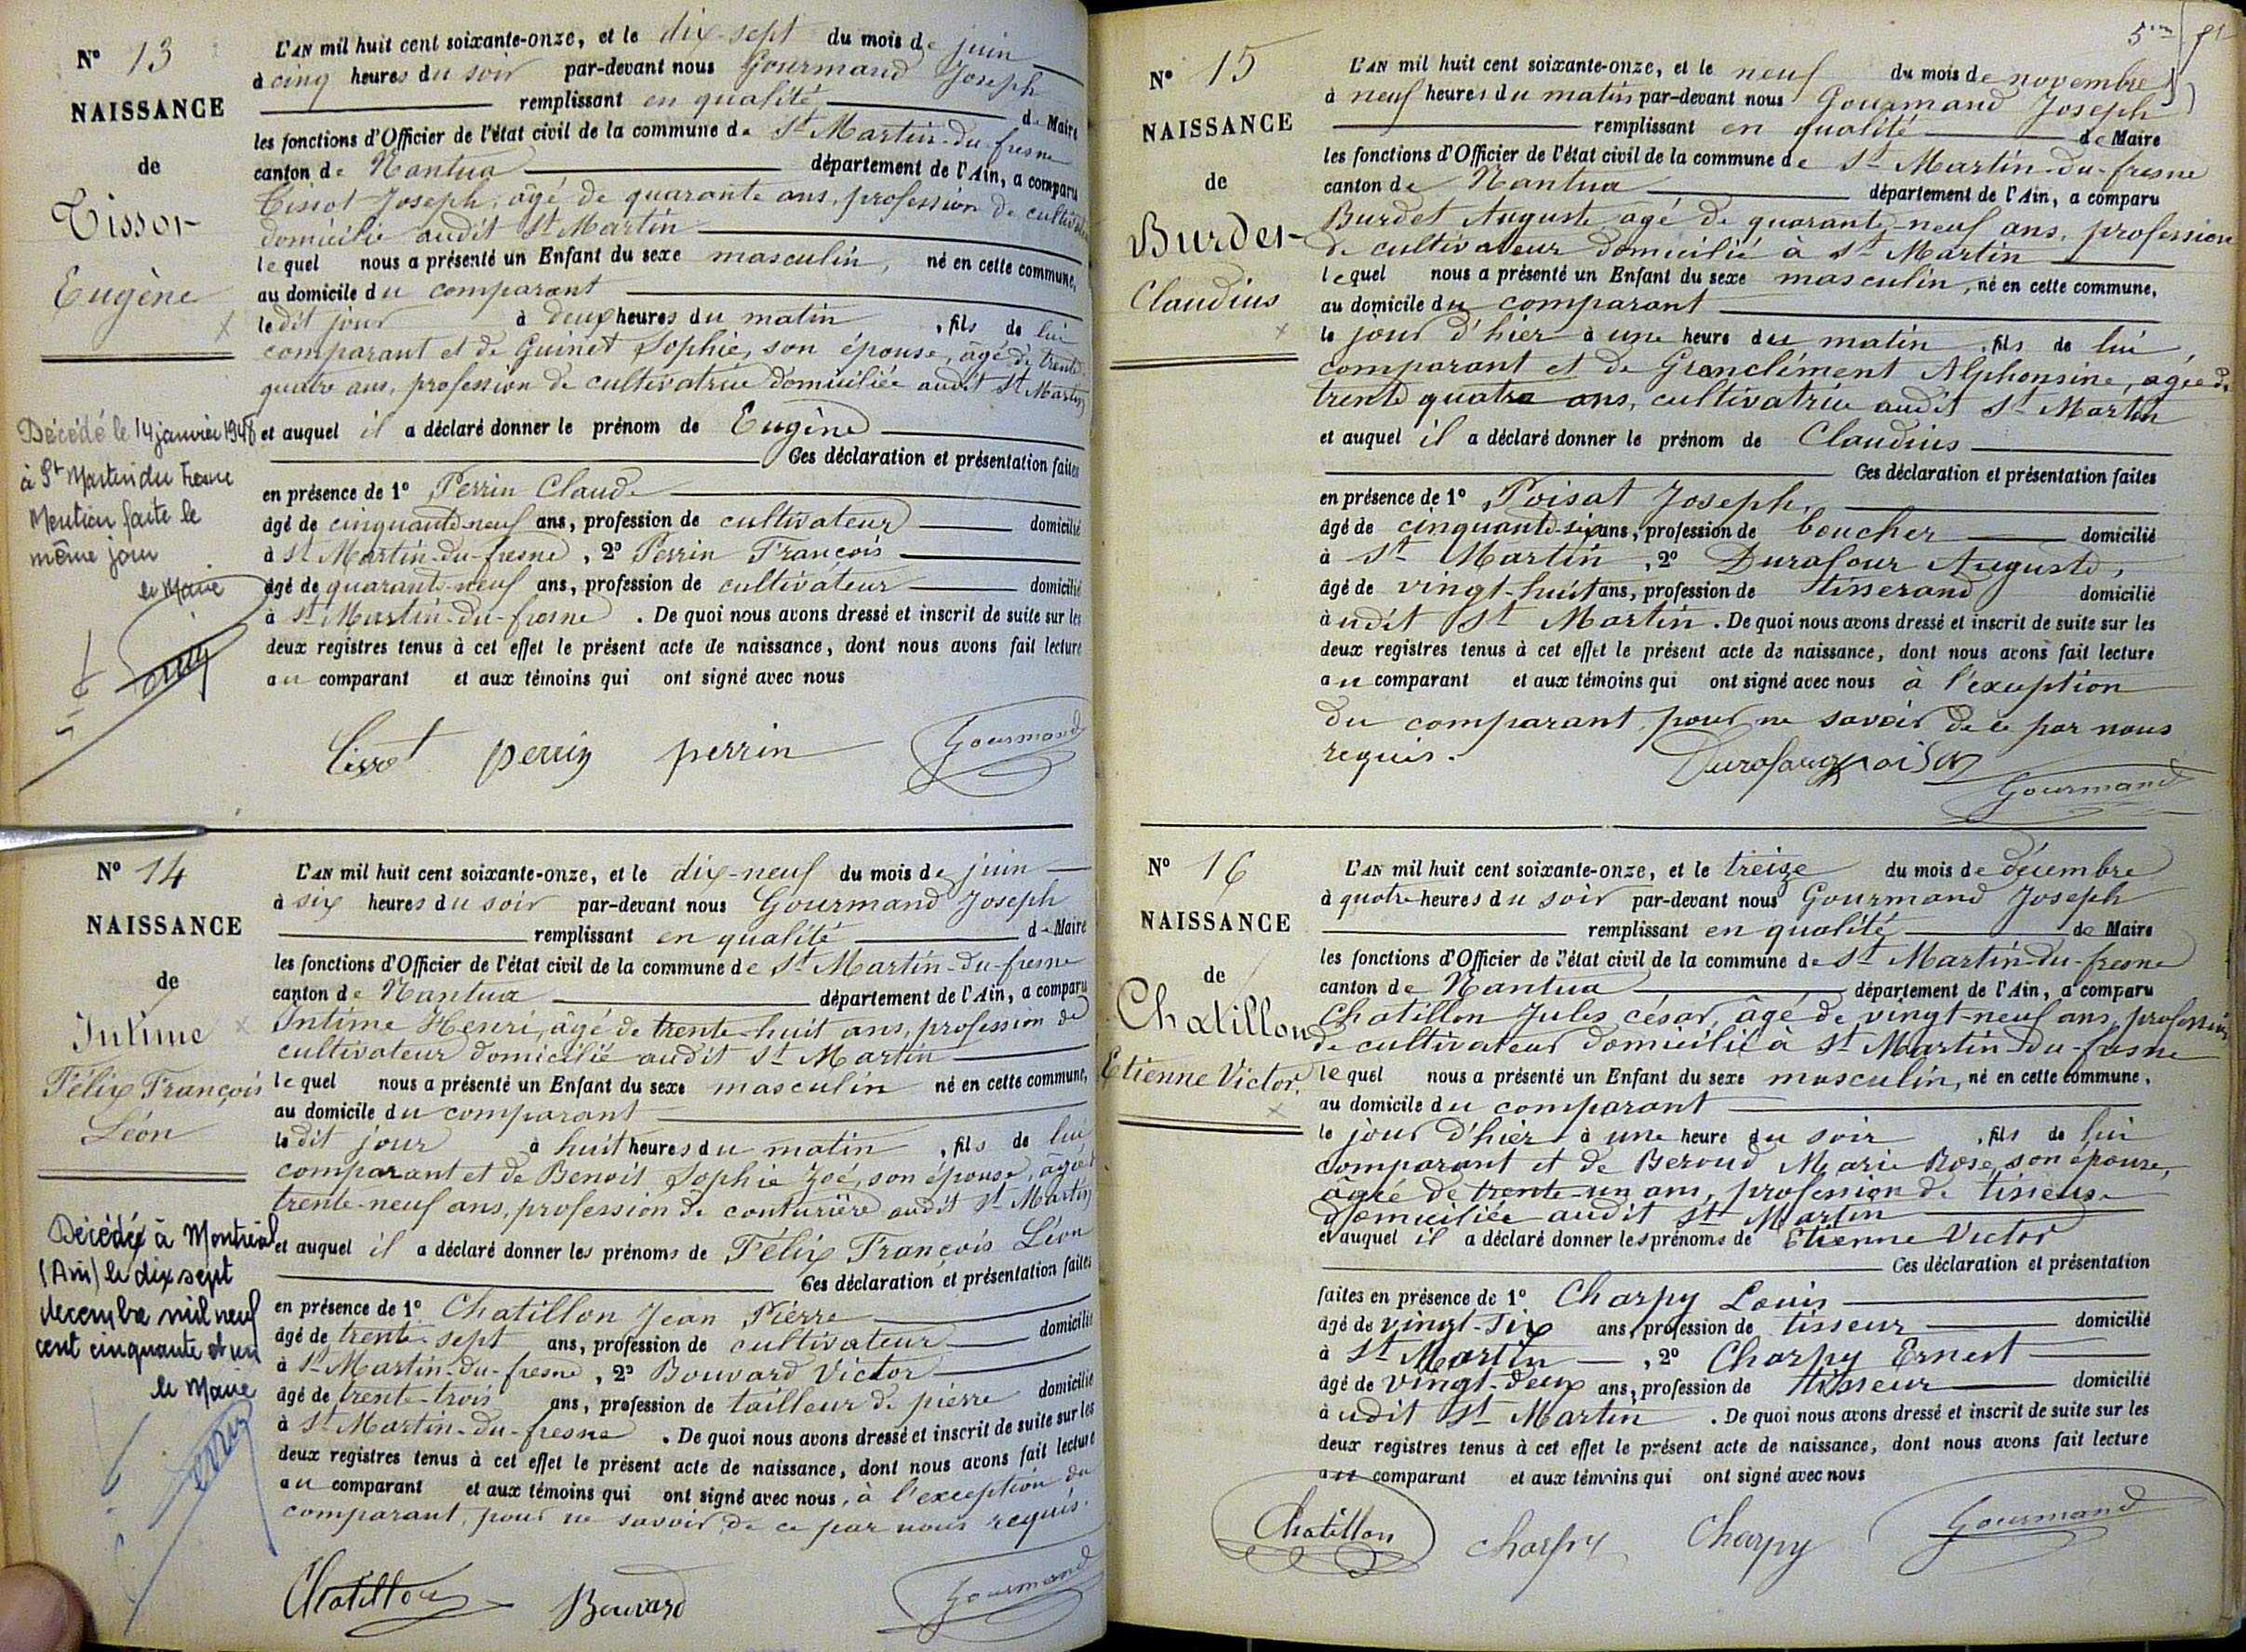 N° 13
NAISSANCE
de
Tissot
Eugène
Décédé le 14 janvier 1948
à St Martin du Fresne
Mention faite le
même jour
le Maire
L'AN mil huit cent soixante-onze, et le dix-sept du mois de juin
à cinq heures du soir par-devant nous Gourmand Joseph
remplissant en qualité de Maire
les fonctions d'Officier de l'état civil de la commune de St Martin-du-fresne
canton de Nantua département de l'Ain, a comparu
Tissot Joseph, âgé de quarante ans, profession de cultivateur
domicilié audit St Martin
lequel nous a présenté un Enfant du sexe masculin, né en cette commune,
au domicile du comparant
le dit jour à deux heures du matin, fils de lui
comparant et de Guinet Sophie, son épouse, âgé de trente
quatre ans, profession de cultivatrice domiciliée audit St Martin
et auquel il a déclaré donner le prénom de Eugène
Ces déclaration et présentation faites
en présence de 1° Perrin Claude
âgé de cinquante-neuf ans, profession de cultivateur domicilié
à St Martin-du-fresne, 2° Perrin François
âgé de quarante-neuf ans, profession de cultivateur domicilié
à St Martin-du-fresne. De quoi nous avons dressé et inscrit de suite sur les
deux registres tenus à cet effet le présent acte de naissance, dont nous avons fait lecture
au comparant et aux témoins qui ont signé avec nous
Tissot perrin perrin Gourmand
N° 14
NAISSANCE
de
Intime
Félix François
Léon
Décédé à Montréal
(Ain) le dix sept
decembre mil neuf
cent cinquante et un
le Maire
L'AN mil huit cent soixante-onze, et le dix-neuf du mois de juin
à six heures du soir par-devant nous Gourmand Joseph
remplissant en qualité de Maire
les fonctions d'Officier de l'état civil de la commune de St Martin-du-fresne
canton de Nantua département de l'Ain, a comparu
Intime Henri, âgé de trente-huit ans, profession de
cultivateur domicilié audit St Martin
lequel nous a présenté un Enfant du sexe masculin né en cette commune,
au domicile du comparant
le dit jour à huit heures du matin, fils de lui
comparant et de Benoit Sophie Zoé, son épouse, âgée
trente-neuf ans, profession de couturière audit St Martin
et auquel il a déclaré donner les prénoms de Félix François Léon
Ces déclaration et présentation faites
en présence de 1° Chatillon Jean Pierre
âgé de trente-sept ans, profession de cultivateur domicilié
à St Martin-du-fresne, 2° Bouvard Victor
âgé de trente-trois ans, profession de tailleur de pierre domicilié
à St Martin-du-fresne. De quoi nous avons dressé et inscrit de suite sur les
deux registres tenus à cet effet le présent acte de naissance, dont nous avons fait lecture
au comparant et aux témoins qui ont signé avec nous, à l'exception du
comparant, pour ne savoir, de ce par nous requis.
Chatillon Bouvard Gourmand
5me
N° 15
NAISSANCE
de
Burdet
Claudius
L'AN mil huit cent soixante-onze, et le neuf du mois de novembre
à neuf heures du matin par-devant nous Gourmand Joseph
remplissant en qualité de Maire
les fonctions d'Officier de l'état civil de la commune de St Martin-du-fresne
canton de Nantua département de l'Ain, a comparu
Burdet Auguste âgé de quarante-neuf ans, profession
de cultivateur domicilié à St Martin
lequel nous a présenté un Enfant du sexe masculin, né en cette commune,
au domicile du comparant
le jour d'hier à une heure du matin, fils de lui,
comparant et de Granclément Alphonsine, âgée de
trente quatre ans, cultivatrice audit St Martin
et auquel il a déclaré donner le prénom de Claudius
Ces déclaration et présentation faites
en présence de 1° Poisat Joseph,
âgé de cinquante-six ans, profession de boucher domicilié
à St Martin, 2° Durafour Auguste,
âgé de vingt-huit ans, profession de tisserand domicilié
à udit St Martin. De quoi nous avons dressé et inscrit de suite sur les
deux registres tenus à cet effet le présent acte de naissance, dont nous avons fait lecture
au comparant et aux témoins qui ont signé avec nous à l'exception
du comparant, pour ne savoir de ce par nous
requis.
Durafour poisat
Gourmand
N° 16
NAISSANCE
de
Chatillon
Etienne Victor.
L'AN mil huit cent soixante-onze, et le treize du mois de décembre
à quatre heures du soir par-devant nous Gourmand Joseph
remplissant en qualité de Maire
les fonctions d'Officier de l'état civil de la commune de St Martin-du-fresne
canton de Nantua département de l'Ain, a comparu
Chatillon Jules césar, âgé de vingt-neuf ans, profession
de cultivateur domicilié à St Martin-du-fresne
lequel nous a présenté un Enfant du sexe masculin, né en cette commune,
au domicile du comparant
le jour d'hier à une heure du soir, fils de lui
comparant et de Beroud Marie Rose, son épouse,
âgée de trente-un ans, profession de tisseuse
domiciliée audit St Martin
et auquel il a déclaré donner les prénoms de Etienne Victor
Ces déclaration et présentation
faites en présence de 1° Charpy Louis
âgé de vingt-six ans, profession de tisseur domicilié
à St Martin, 2° Charpy Ernest
âgé de vingt-deux ans, profession de tisseur domicilié
à udit St Martin. De quoi nous avons dressé et inscrit de suite sur les
deux registres tenus à cet effet le présent acte de naissance, dont nous avons fait lecture
au comparant et aux témoins qui ont signé avec nous
Chatillon Charpy Charpy Gourmand